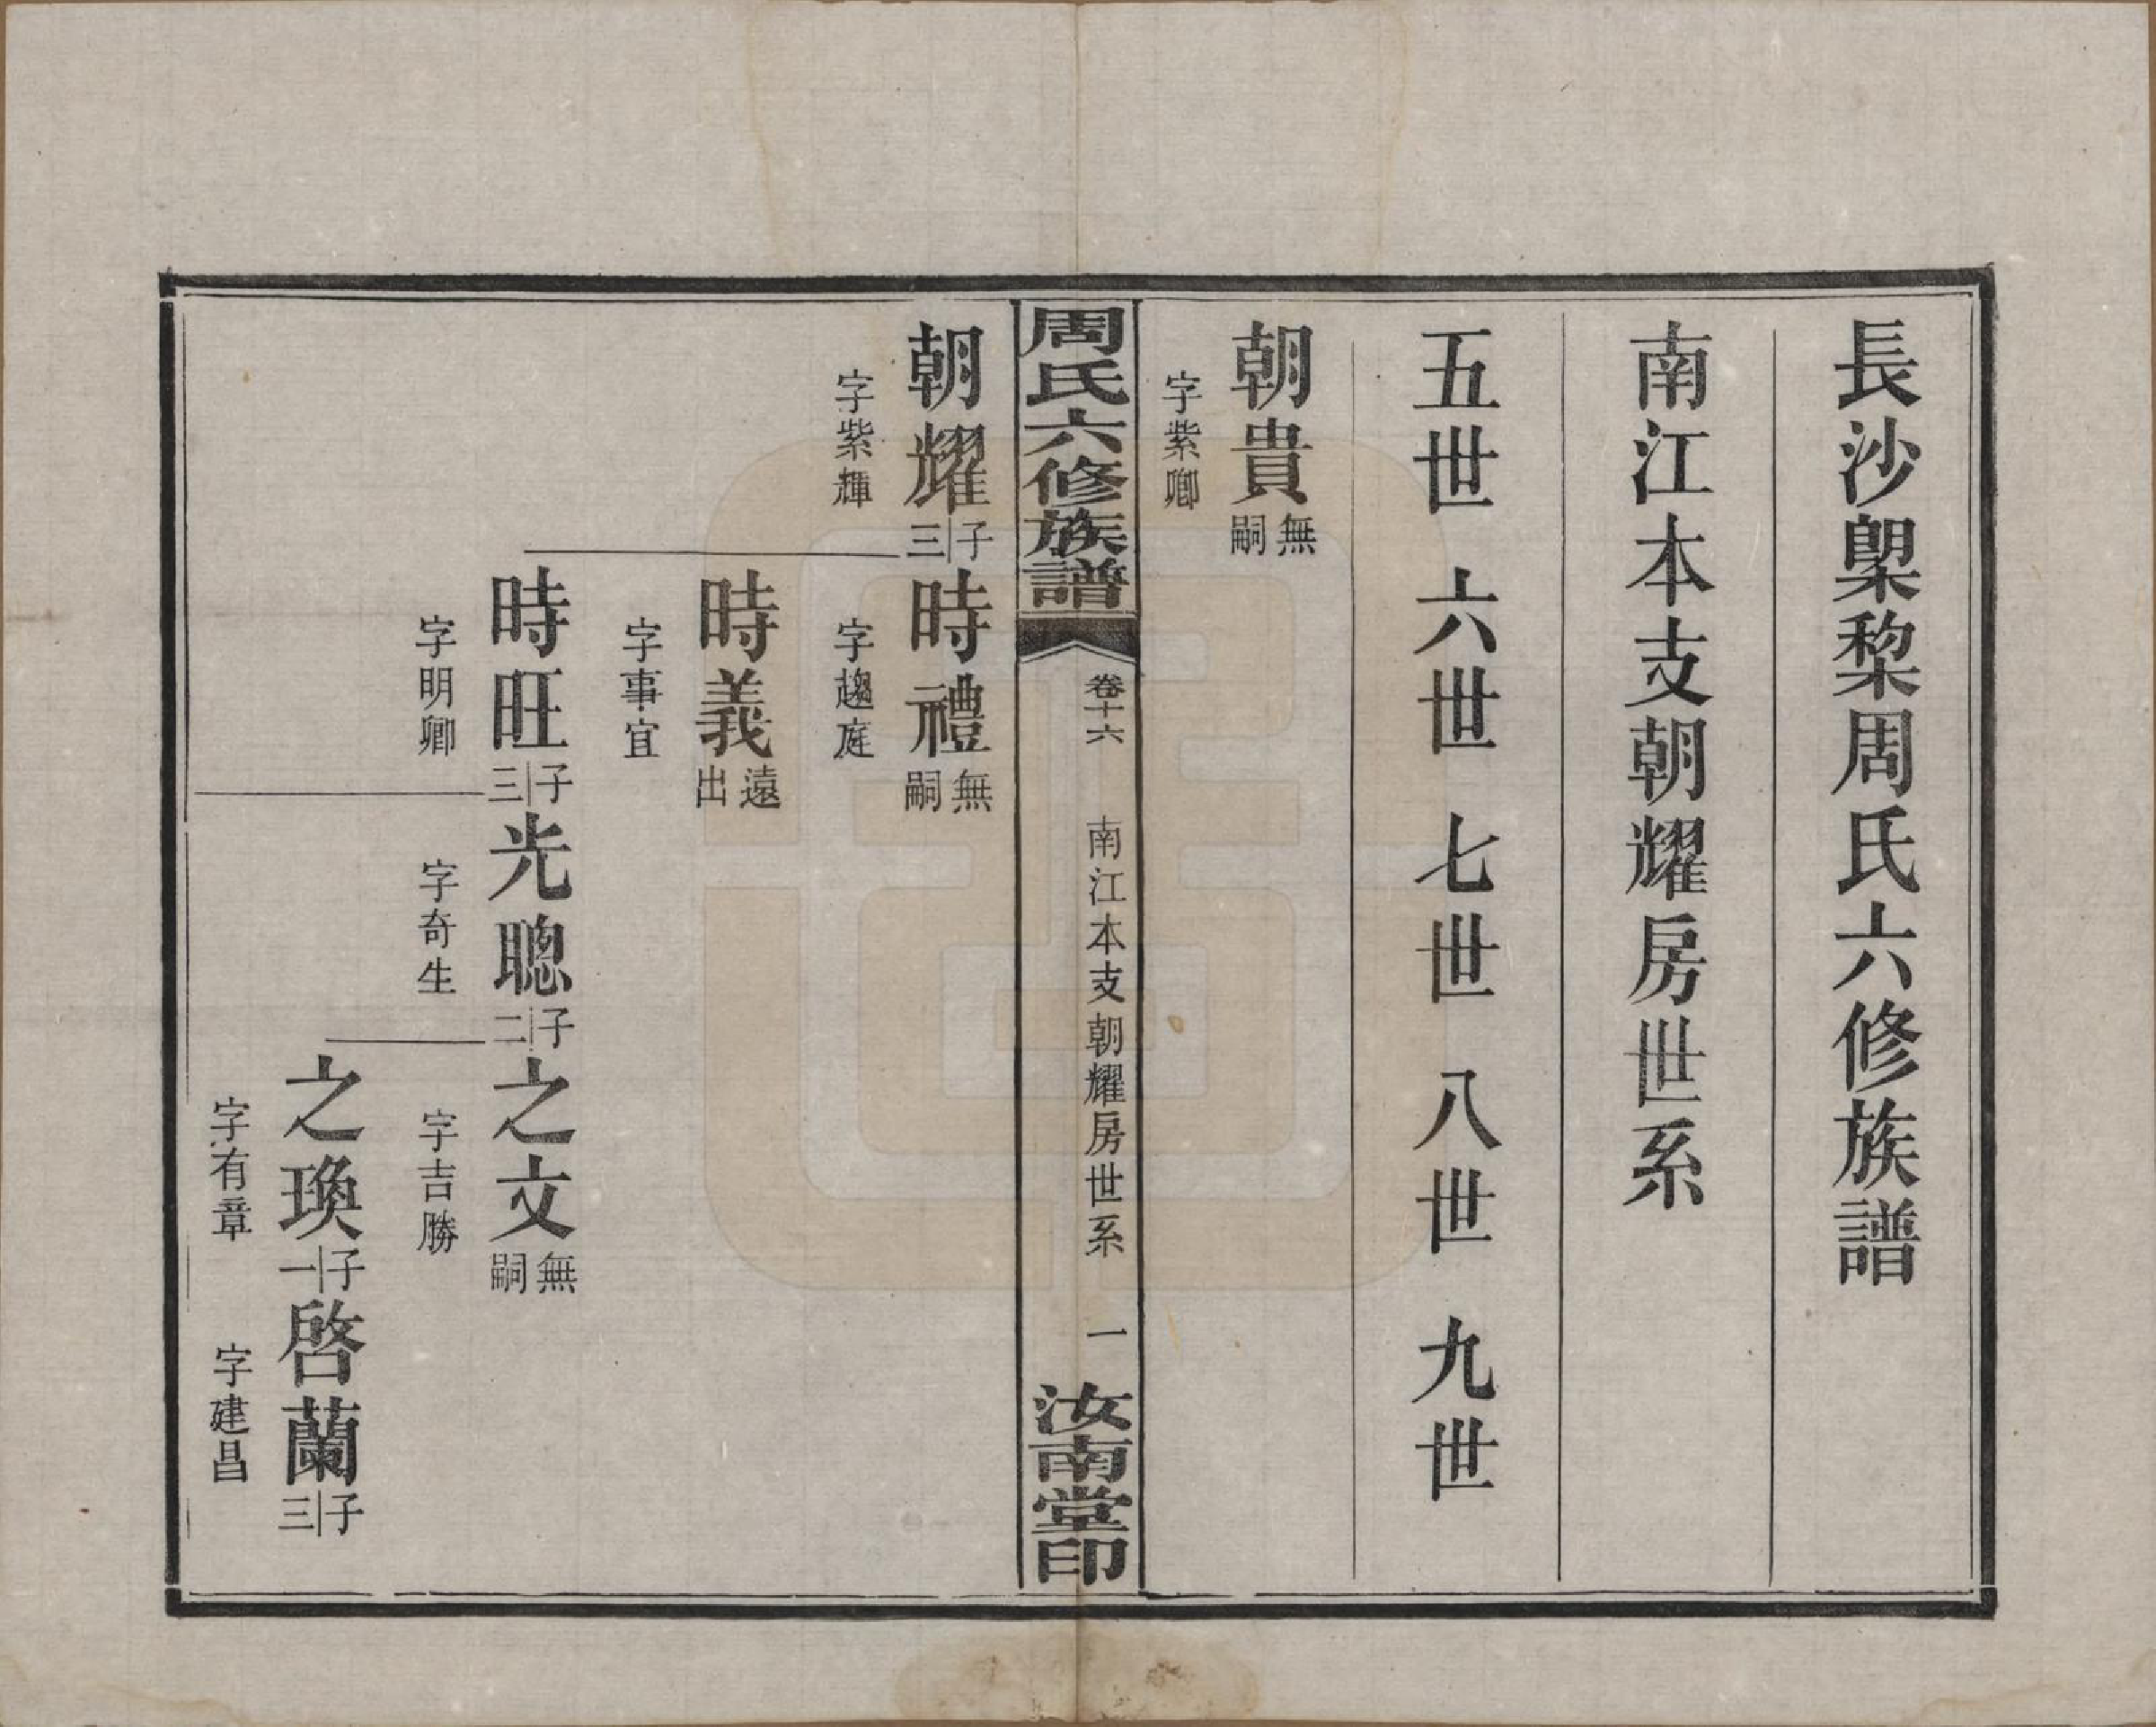 長沙㮚棃周氏六修族譜
南江本支朝耀房世系
五世 六世 七世 八世 九世
朝貴 無嗣
字紫卿
周氏六修族譜 卷十六 南江本支朝耀房世系 一 汝南堂印
朝耀 子三 時禮 無嗣
字紫輝 字趨庭
時義 遠出
字事宜
時旺 子三 光聰 子二 之文 無嗣
字明卿 字奇生 字吉勝
之瑍 子一 啓蘭 子三
字有章 字建昌